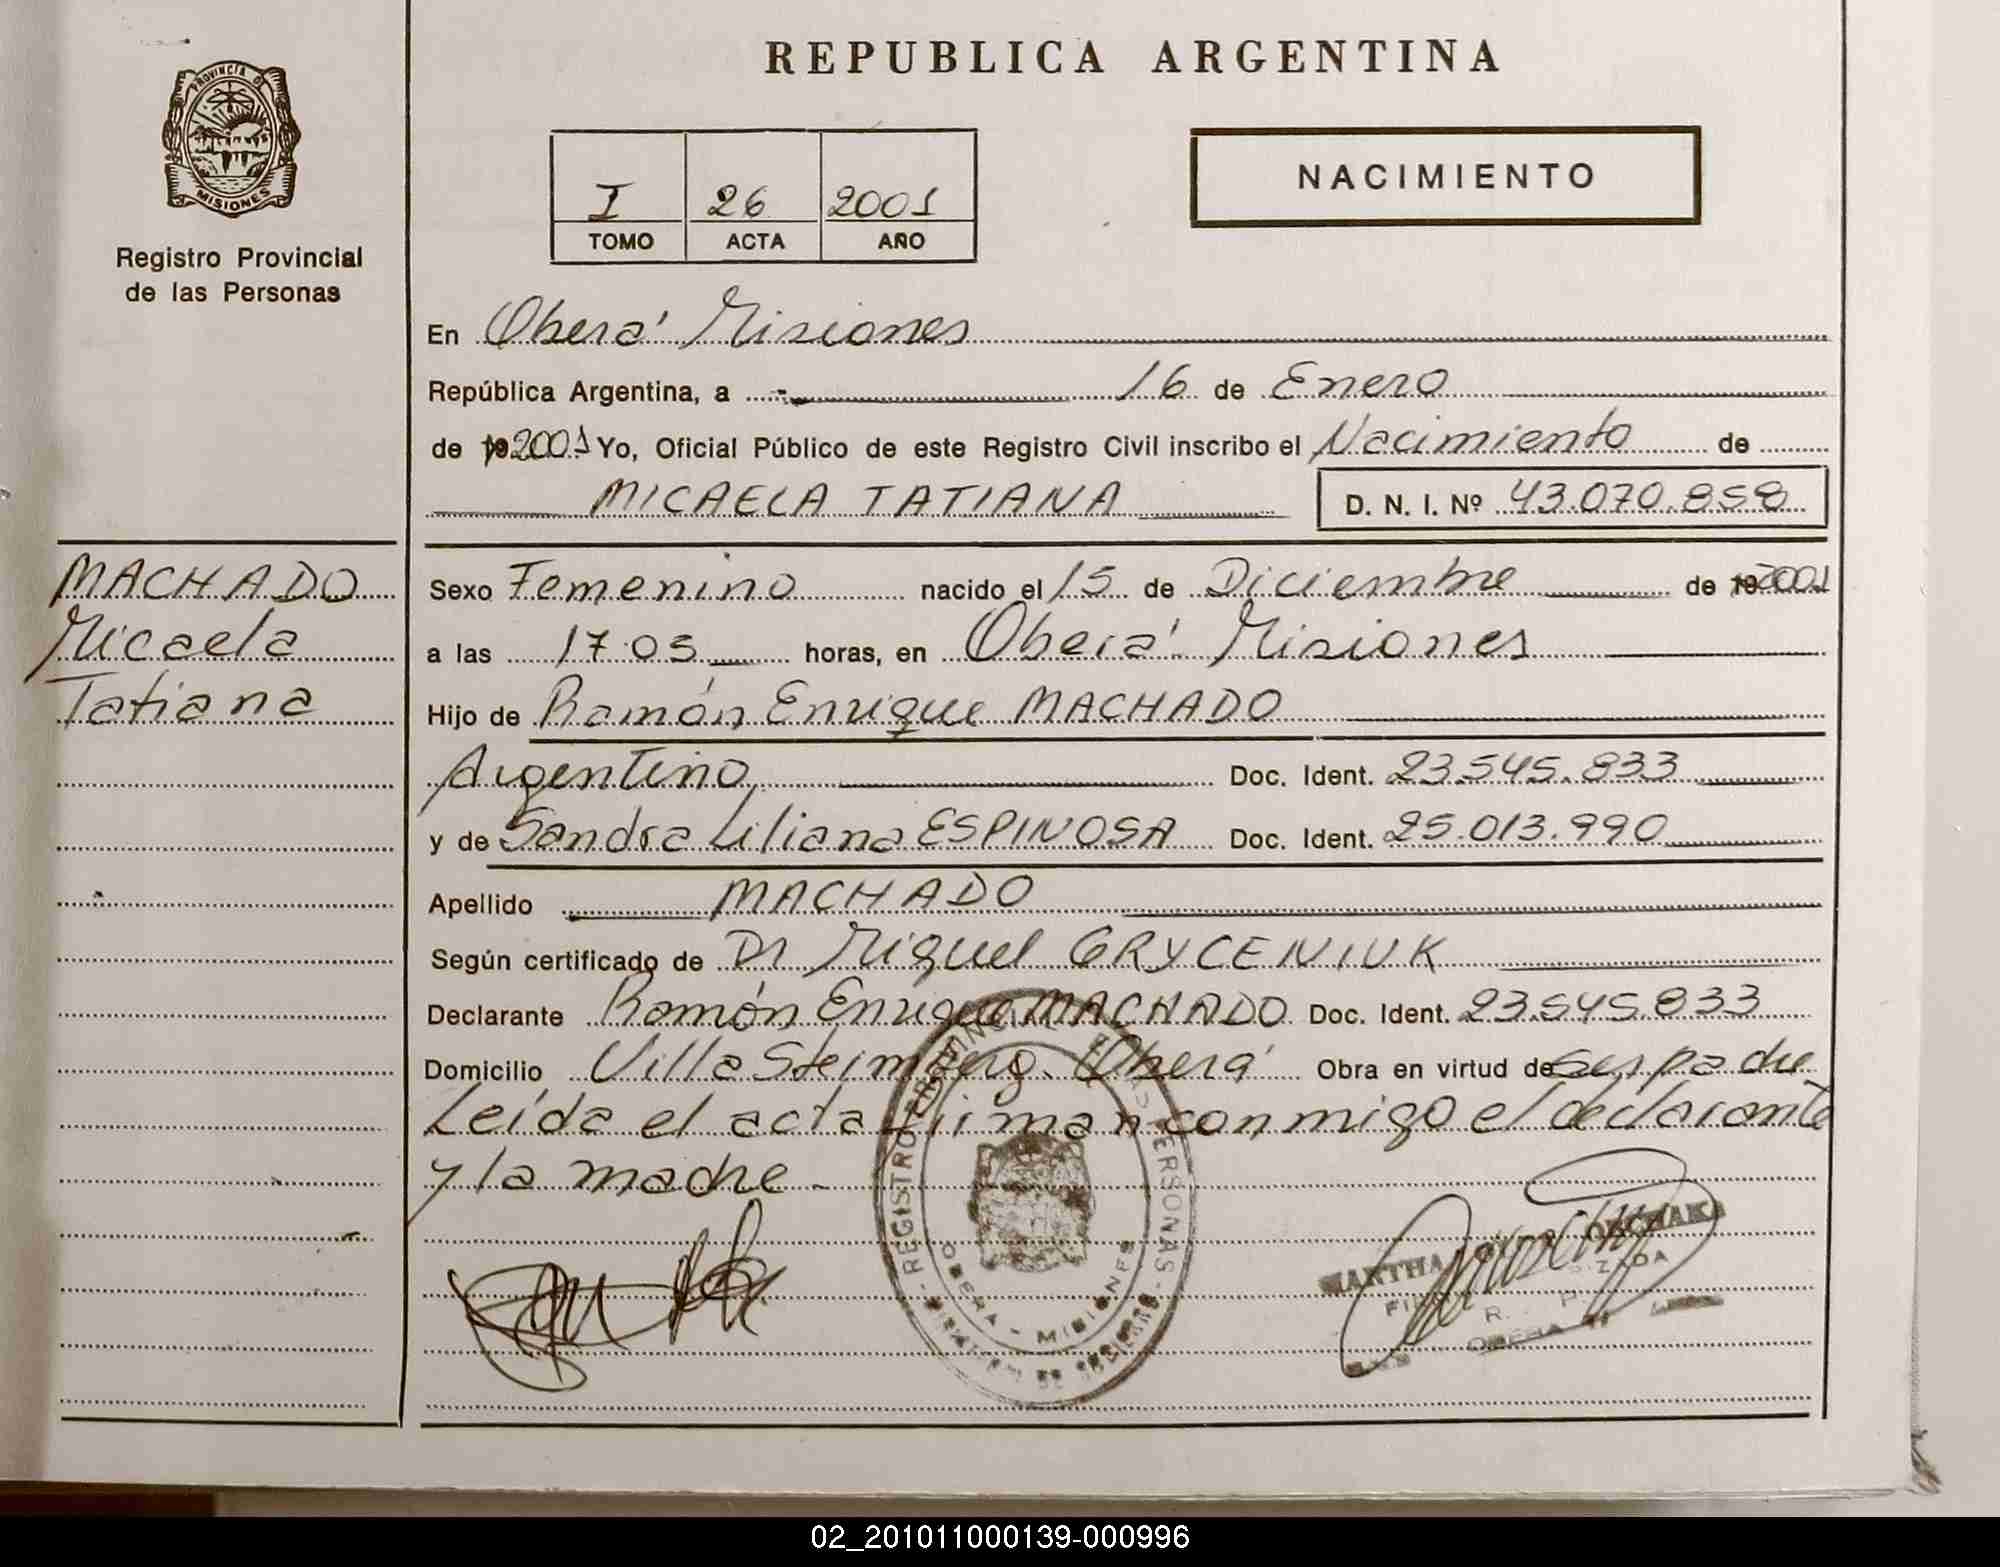 REPUBLICA ARGENTINA
PROVINCIA DE
MISIONES
Registro Provincial
de las Personas
I 26 2001
TOMO ACTA AÑO
NACIMIENTO
En Oberá Misiones
República Argentina, a 16 de Enero
de 2001 Yo, Oficial Público de este Registro Civil inscribo el Nacimiento de
MICAELA TATIANA D. N. I. Nº 43.070.858
MACHADO
Micaela
Tatiana
Sexo Femenino nacido el 15 de Diciembre de 2001
a las 17.05 horas, en Oberá Misiones
Hijo de Ramón Enrique MACHADO
Argentino Doc. Ident. 23.545.833
y de Sandra Liliana ESPINOSA Doc. Ident. 25.013.990
Apellido MACHADO
Según certificado de Dr Miguel GRYCENIUK
Declarante Ramón Enrique MACHADO Doc. Ident. 23.545.833
Domicilio Villa Steimberg. Oberá Obra en virtud de ser padre
Leída el acta firman conmigo el declarante
y la madre.-
REGISTRO PERSONAS
OBERA - MISIONES
02_201011000139-000996